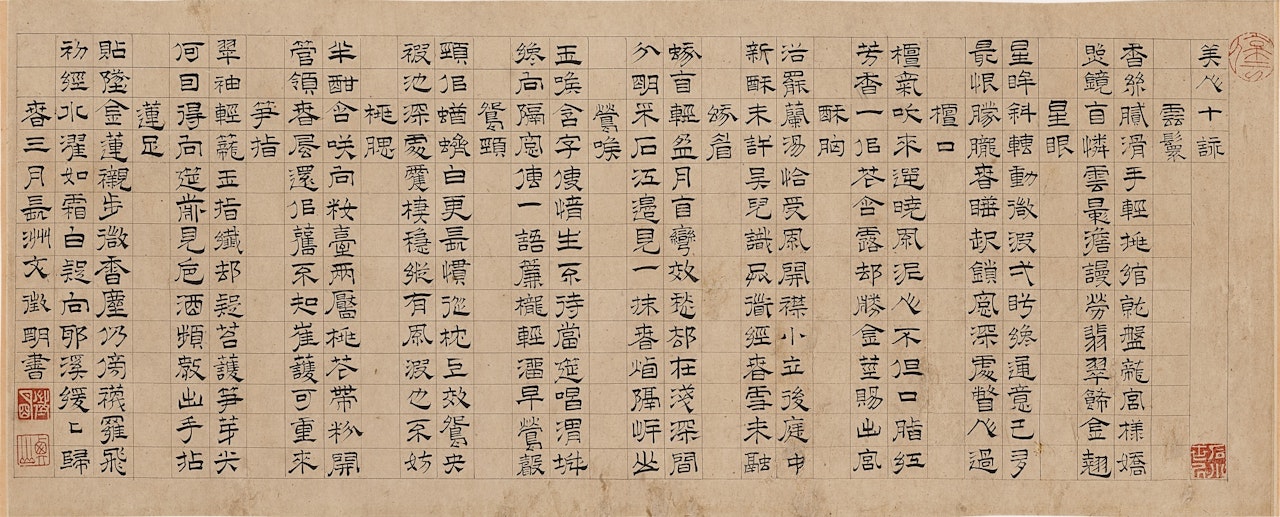 美人十詠
雲鬟
香絲膩滑手輕挑綰就盤龍宮樣嬌
照鏡自憐雲澹謾勞翡翠飾金翹
星眼
星眸斜轉動微波弌盻纔通意已多
最恨朦朧春睡起鎖窻深處瞥人過
檀口
檀氣吹來逆曉風泥人不但口脂紅
芳香一佀花含露却勝金莖賜出宮
酥胸
浴罷蘭湯恰受風開襟小立後庭中
新酥未許吳兒識只道經春雪未融
蛾眉
蛾眉輕盈月自彎效愁都在淺深間
分明采石江邊見一抹春烟隔岍山
鶯喉
玉喉含字使情生不待當筵唱渭城
纔向隔窻傳一語簾櫳輕溜早鶯聲
鴛頸
頸佀蝤蠐白更長慣從枕上效鴛央
被池深處雙棲穩縱有風波也不妨
桃腮
半酣含笑向妝臺兩靨桃花帶粉開
管領春風還佀舊不知崔護可重來
筍指
翠袖輕籠玉指纖却疑苔護筍芽尖
何日得向筵前見色酒頻教出手拈
蓮足
貼墜金蓮襯步微香塵仍傍襪羅飛
初經水濯如霜白疑向耶溪緩〻歸
春三月長洲文徵明書